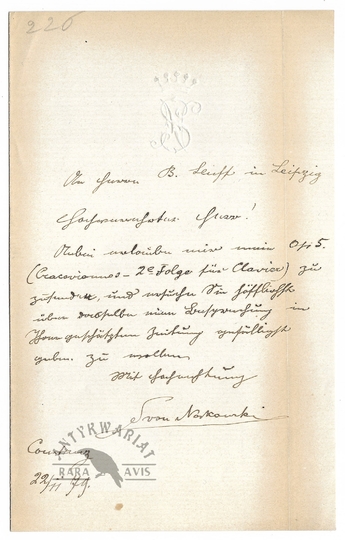 226
An Herrn B. Senff in Leipzig
Hochverehrter Herr!
Anbei erlaube mir mein Op 5.
(Cracoviennes - 2e Folge für Clavier) zu
zusenden, und ersuche Sie höflichst
über dasselbe eine Besprechung in
Ihrer geschätzten Zeitung gefälligst
geben zu wollen
Mit Hochachtung
S von Noskowski
Constanz
22/11 79.
ANTYKWARIAT
RARA AVIS